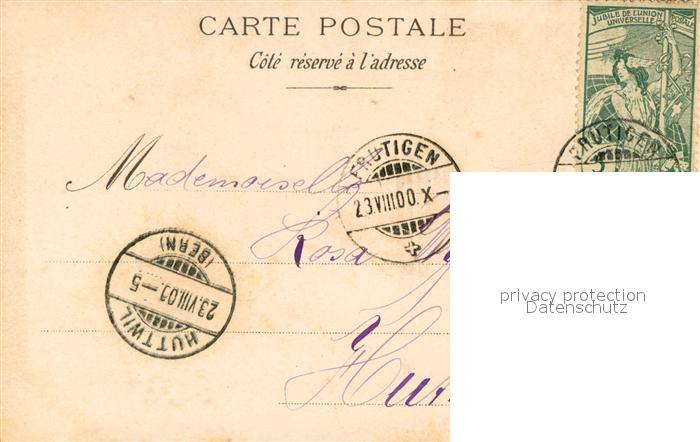 CARTE POSTALE
Côté réservé à l'adresse
JUBILÉ DE L'UNION POSTALE
UNIVERSELLE
FRUTIGEN
23.VIII.00.X–
FRUTIGEN
Mademoiselle
Rosa
HUTTWIL
23.VIII.00.–5
(BERN)
privacy protection
Datenschutz